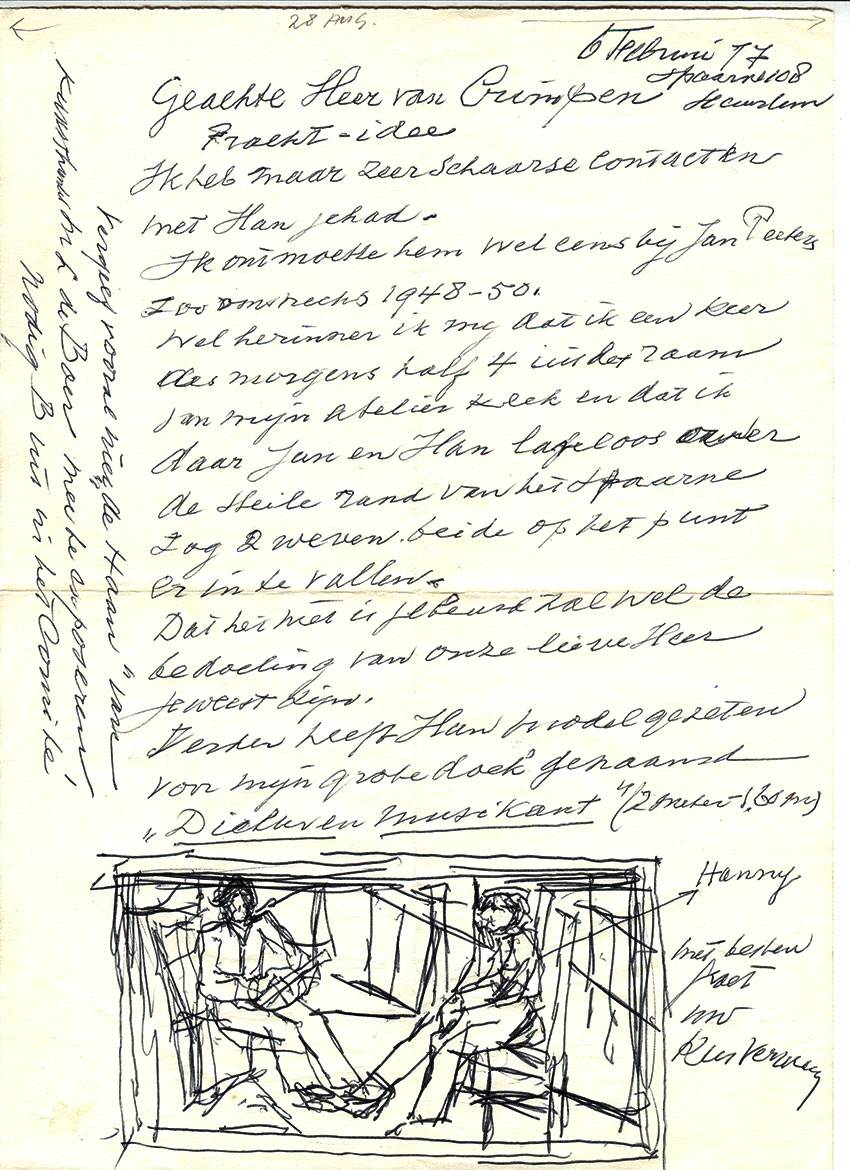 28 AUG.
6 Februari 77
Spaarne 108
Haarlem
Geachte Heer van Crimpen
Pracht-idee
Ik heb maar zeer schaarse contacten
met Han gehad.
Ik ontmoette hem wel eens bij Jan Peeters
zoo omstreeks 1948-50.
Wel herinner ik mij dat ik een keer
des morgens half 4 uit der raam
van mijn atelier keek en dat ik
daar Jan en Han lafeloos over
de steile rand van het Spaarne
zag zweven. beide op het punt
er in te vallen.
Dat het niet is gebeurd zal wel de
bedoeling van onze lieve Heer
geweest zijn.
Verder heeft Han model gezeten
voor mijn grote doek genaamd
"Dichter en musikant" (2 meter-1,60 m)
Hanny
met besten
groet
uw
Kees Verwey
Vergeet vooral niet "de Haan" van
kunsthandel M L de Boer mee te exposeren
nodig B uit in het Comité